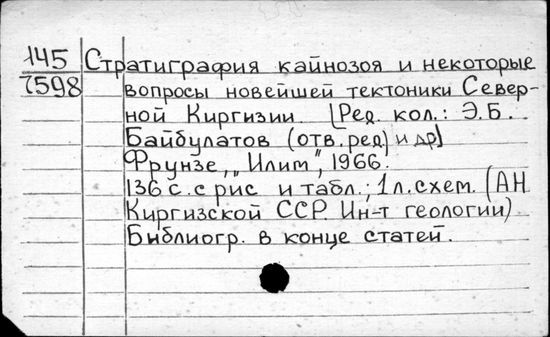 145 Стратиграфия кайнозоя и некоторые
7598 вопросы новейшей тектоники Север-
ной Киргизии [Ред. кол.: Э.Б.
Байбулатов (отв. ред) и др]
Фрунзе, "Илим", 1966.
136 с. с рис и табл.; 1 л. схем. (АН
Киргизской ССР. Ин-т геологии)
Библиогр. в конце статей.